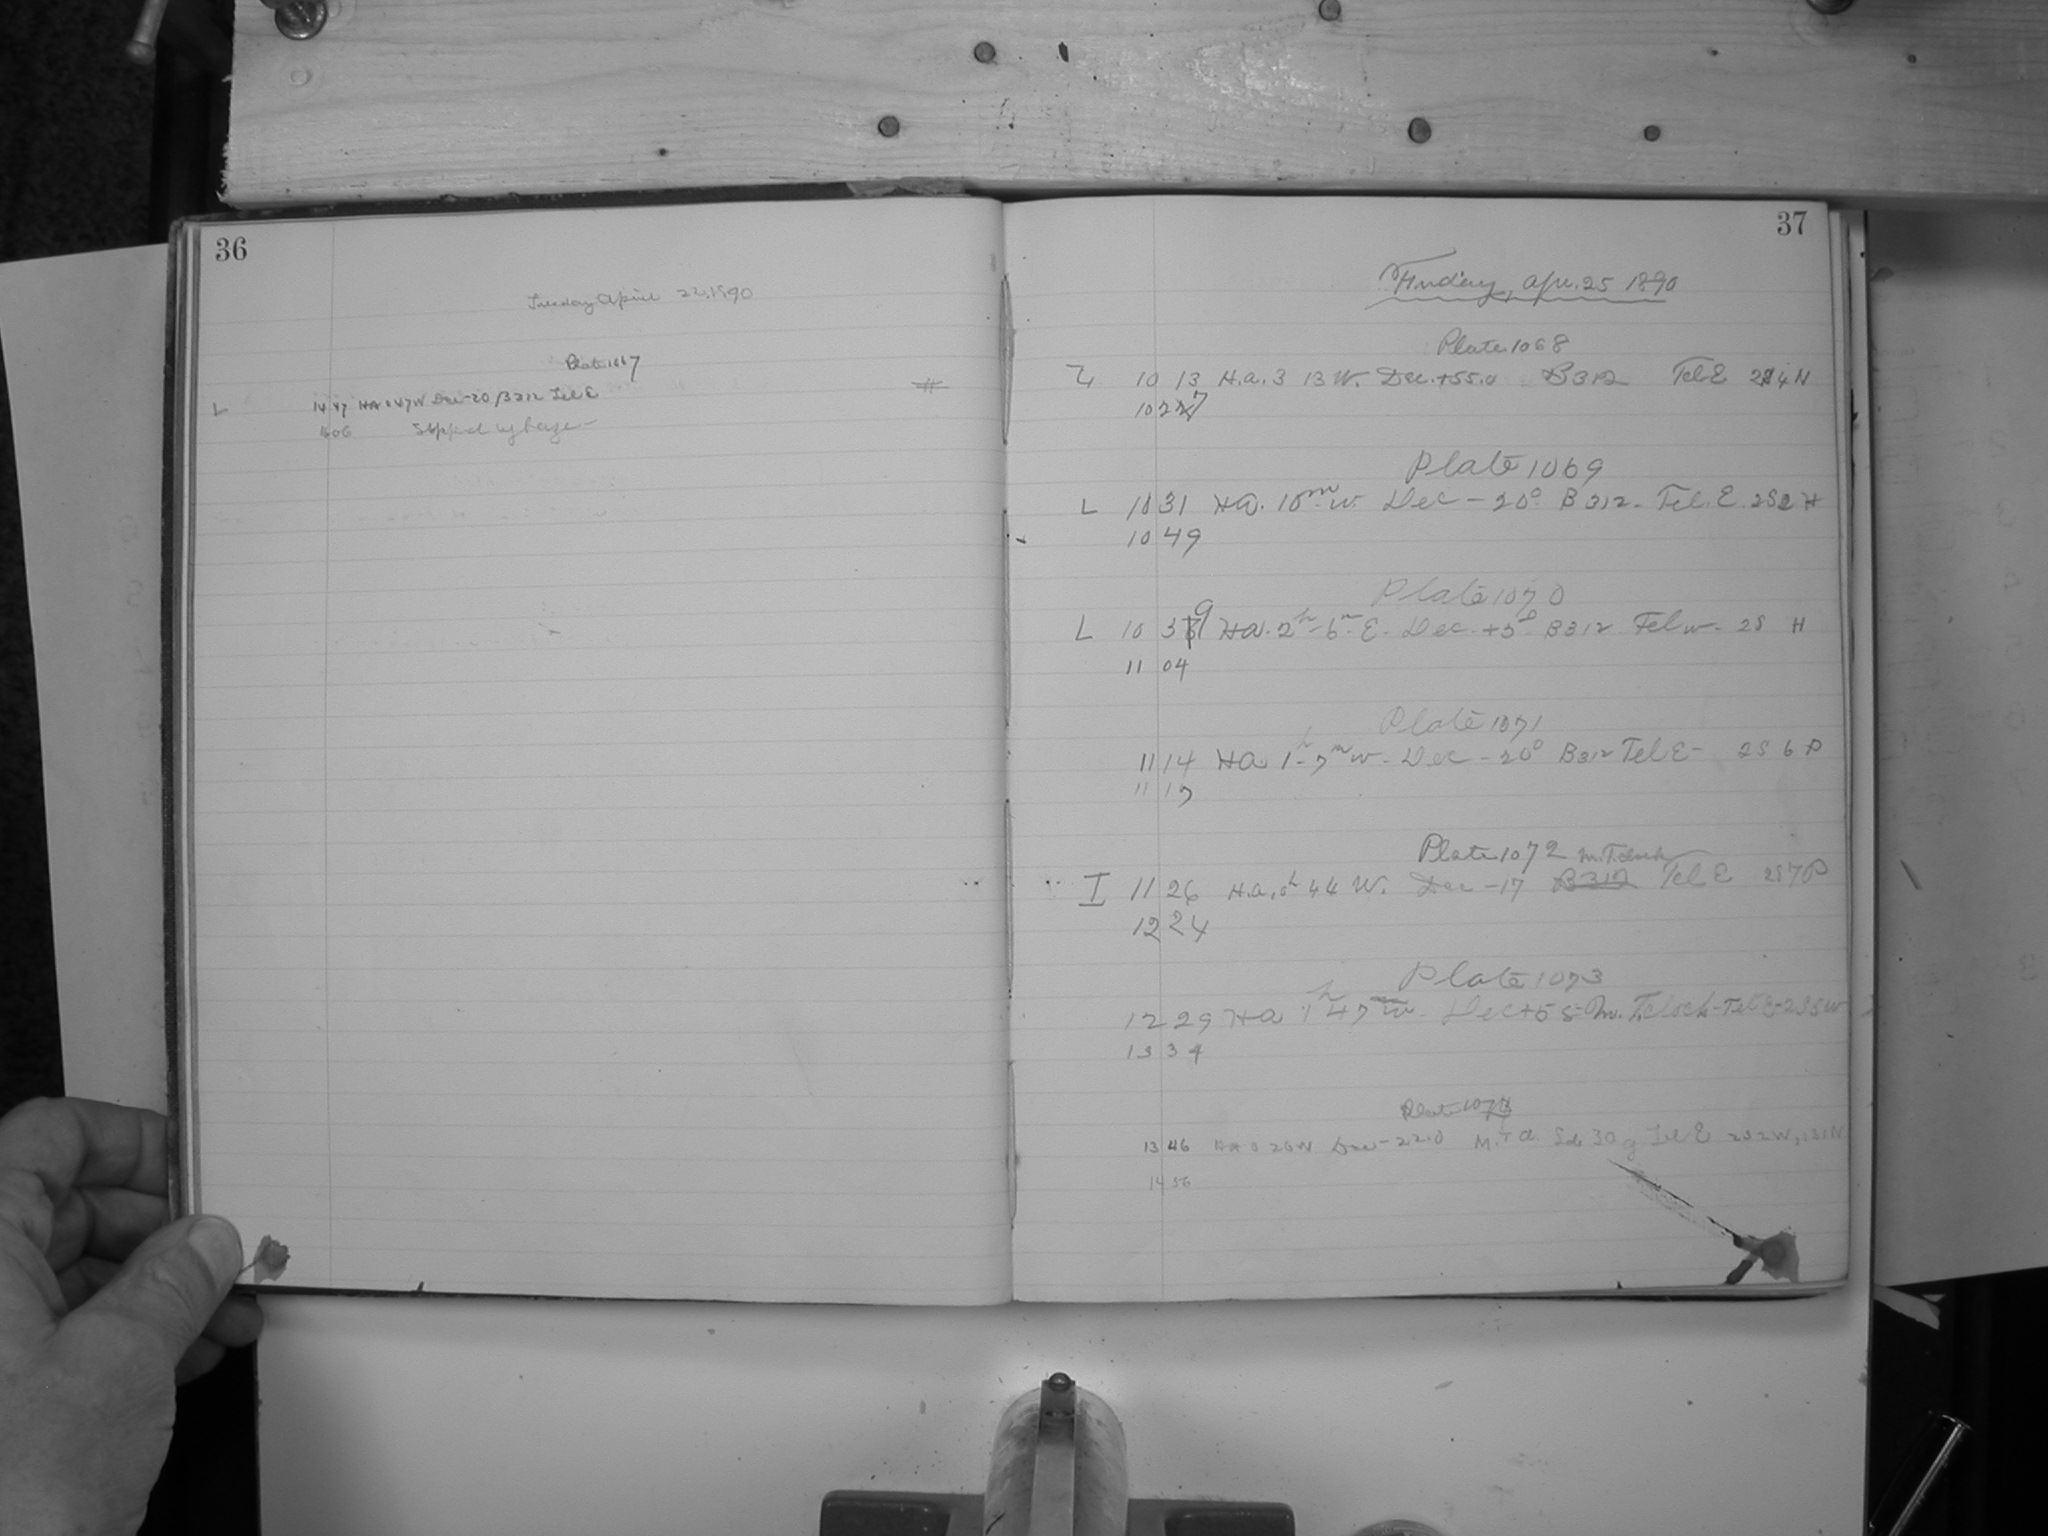 36
Tuesday April 22, 1890
Plate 1067
L 14 47 HA 0 47 W Dec -20 B 312 Tel E
Stopped by haze
37
Friday, Apr. 25 1890
Plate 1068
L 10 13 H.a. 3 13 W. Dec. +55.0 B 312 Tel E
10 27
Plate 1069
L 10 31 Ha. 10m w. Dec - 20° B 312 - Tel. E. 2S2 H
10 49
Plate 1070
L 10 39 Ha. 2h - 6m E. Dec. +5° B 312 Tel w - 2S H
11 04
Plate 1071
11 14 Ha 1h - 7m w - Dec - 20° B 312 Tel E - 2S 6 P
11 17
Plate 1072 M.T. clock
I 11 26 H.a. 0h 44 W. Dec -17 B 312 Tel E 2S7P
12 24
Plate 1073
12 29 Ha 1h 47m w. Dec +55 - M. T. clock - Tel E - 2S5W
13 34
Plate 1074
13 46 HA 0 20 W Dec -22.0 M. T cl. Tel E 2S2W,
14 56